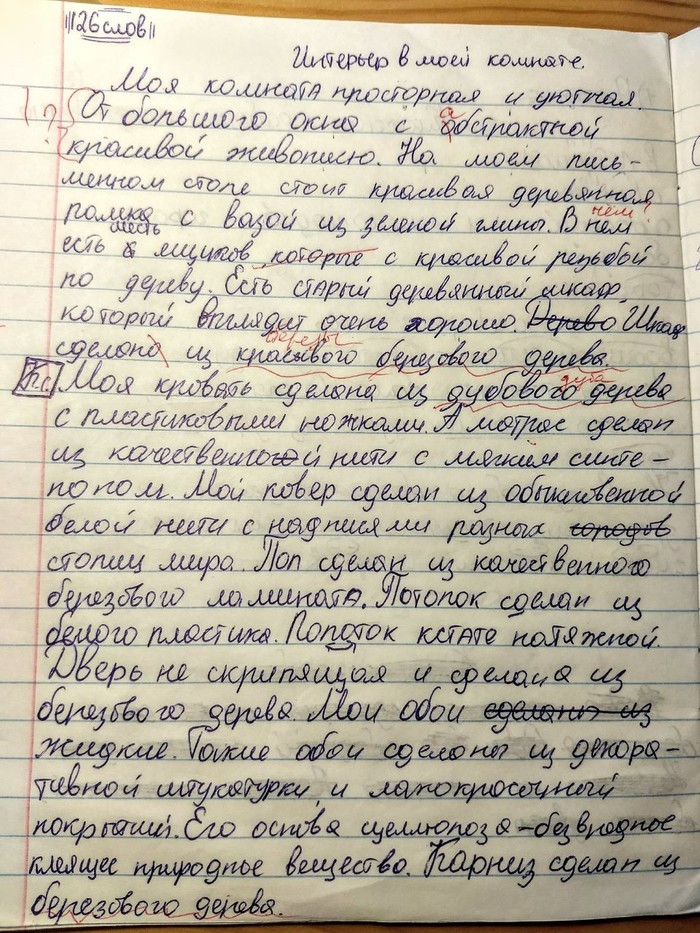 126 слов
Интерьер в моей комнате.
Моя комната просторная и уютная.
От большого окна с абстрактной
красивой живописью. На моём пись-
менном столе стоит красивая деревянная
рамка с вазой из зеленой глины. В нем
нём!
есть шесть ящиков, которые с красивой резьбой
по дереву. Есть старый деревянный шкаф,
который выглядит очень хорошо. Дерево Шкаф
березы
сделана из красивого березового дерева.
дуба
Моя кровать сделана из дубового дерева
с пластиковыми ножками. А матрас сделан
из качественной нити с мягким синте-
попом. Мой ковер сделан из обыкновенной
белой нити с надписями разных городов
столиц мира. Пол сделан из качественного
березового ламината. Потолок сделан из
белого пластика. Попоток кстате натяжной.
Дверь не скрипящая и сделана из
березового дерева. Мои обои сделаны из
жидкие. Такие обои сделаны из декора-
тивной штукатурки и лакокрасочный
покрытий. Его основа целлюлоза - безвредное
клеящее природное вещество. Карниз сделан из
березового дерева.